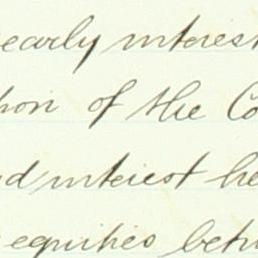 early interest
tion of the Co
nd interest he
equities betw